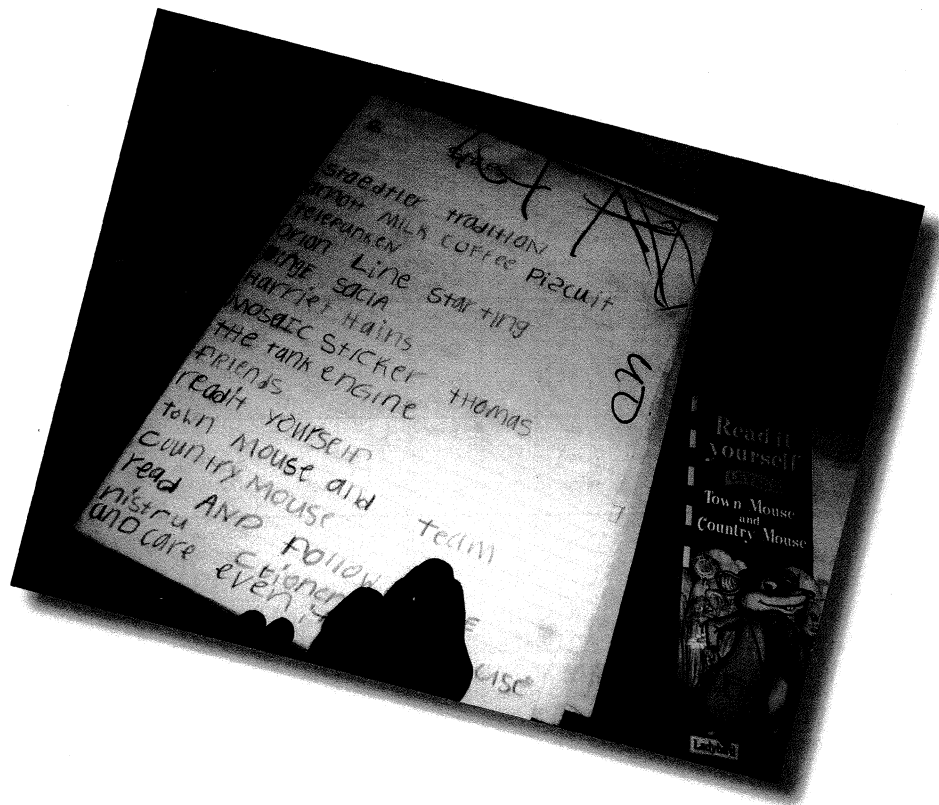 staedtler tradition
Milk coffee Piscuit
Telefunken
Orion Line starting
Harriet Hains
Mosaic Sticker Thomas
the tank engine
friends
readit yourself
town Mouse and
country Mouse team
read AND follow
nistru ctioner
and care even
use
Read it
yourself
Town Mouse
and
Country Mouse
Ladybird